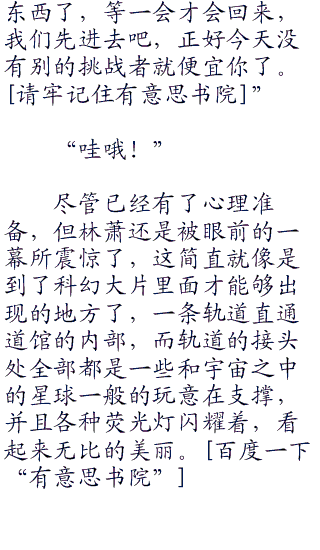 东西了，等一会才会回来，
我们先进去吧，正好今天没
有别的挑战者就便宜你了。
[请牢记住有意思书院]”
“哇哦！”
尽管已经有了心理准
备，但林萧还是被眼前的一
幕所震惊了，这简直就像是
到了科幻大片里面才能够出
现的地方了，一条轨道直通
道馆的内部，而轨道的接头
处全部都是一些和宇宙之中
的星球一般的玩意在支撑，
并且各种荧光灯闪耀着，看
起来无比的美丽。[百度一下
“有意思书院”]